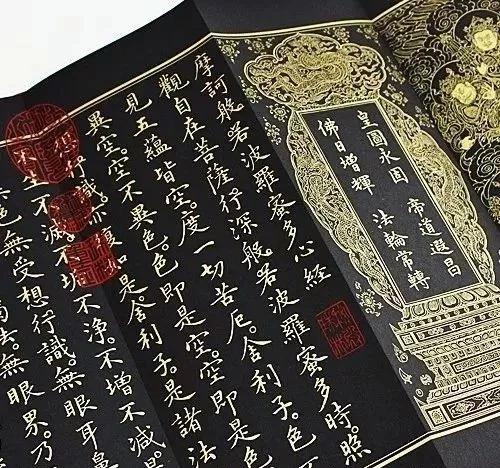 皇圖永固　帝道遐昌
佛日增輝　法輪常轉
摩訶般若波羅蜜多心經
觀自在菩薩行深般若波羅蜜多時。照
見五蘊皆空。度一切苦厄。舍利子。色
異空。空不異色。色即是空。空即是
想行識。亦復如是。舍利子。是諸法
不生不滅。不垢不淨。不增不減。是
色無受想行識。無眼耳鼻
法。無眼界。乃